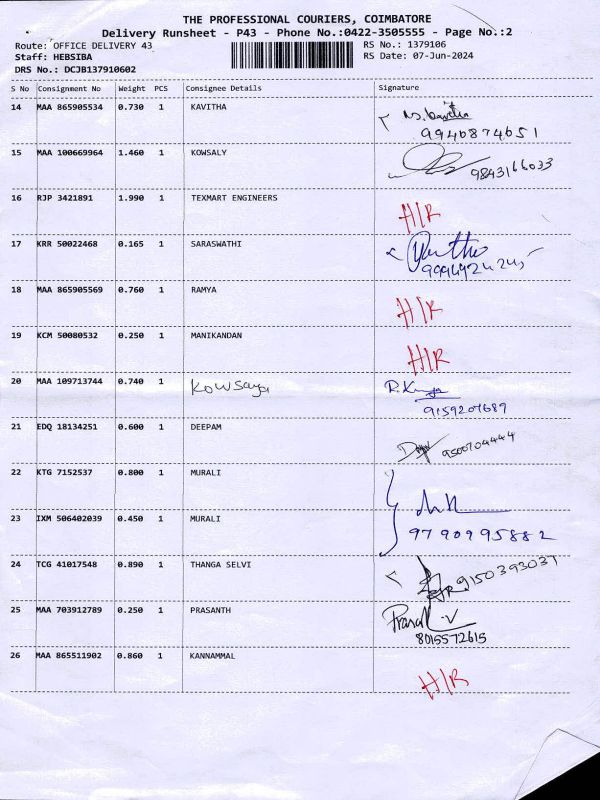 THE PROFESSIONAL COURIERS, COIMBATORE
Delivery Runsheet - P43 - Phone No.:0422-3505555 - Page No.:2
Route: OFFICE DELIVERY 43 RS No.: 1379106
Staff: HEBSIBA RS Date: 07-Jun-2024
DRS No.: DCJB137910602
S No Consignment No Weight PCS Consignee Details Signature
14 MAA 865905534 0.730 1 KAVITHA
9940874051
15 MAA 100669964 1.460 1 KOWSALY
9843166033
16 RJP 3421891 1.990 1 TEXMART ENGINEERS
H/R
17 KRR 50022468 0.165 1 SARASWATHI
18 MAA 865905569 0.760 1 RAMYA
H/R
19 KCM 50080532 0.250 1 MANIKANDAN
H/R
20 MAA 109713744 0.740 1 Kowsaya
9159207687
21 EDQ 18134251 0.600 1 DEEPAM
9500704444
22 KTG 7152537 0.800 1 MURALI
23 IXM 506402039 0.450 1 MURALI
9790995882
24 TCG 41017548 0.890 1 THANGA SELVI
9150393037
25 MAA 703912789 0.250 1 PRASANTH
8015572615
26 MAA 865511902 0.860 1 KANNAMMAL
H/R